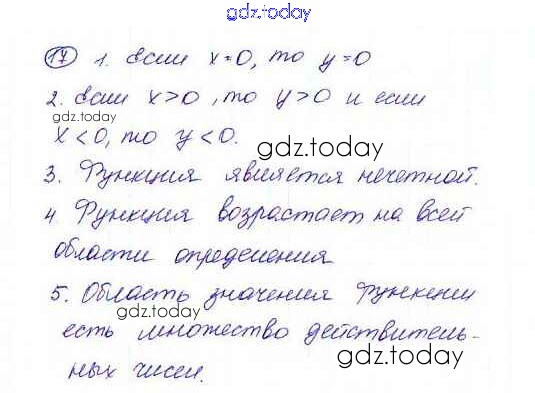 gdz.today
17 1. Если x=0, то y=0
2. Если x>0, то y>0 и если
gdz.today
x<0, то y<0.
gdz.today
3. Функция является нечетной.
4. Функция возрастает на всей
области определения
5. Область значения функции
gdz.today
есть множество действитель-
gdz.today
ных чисел.